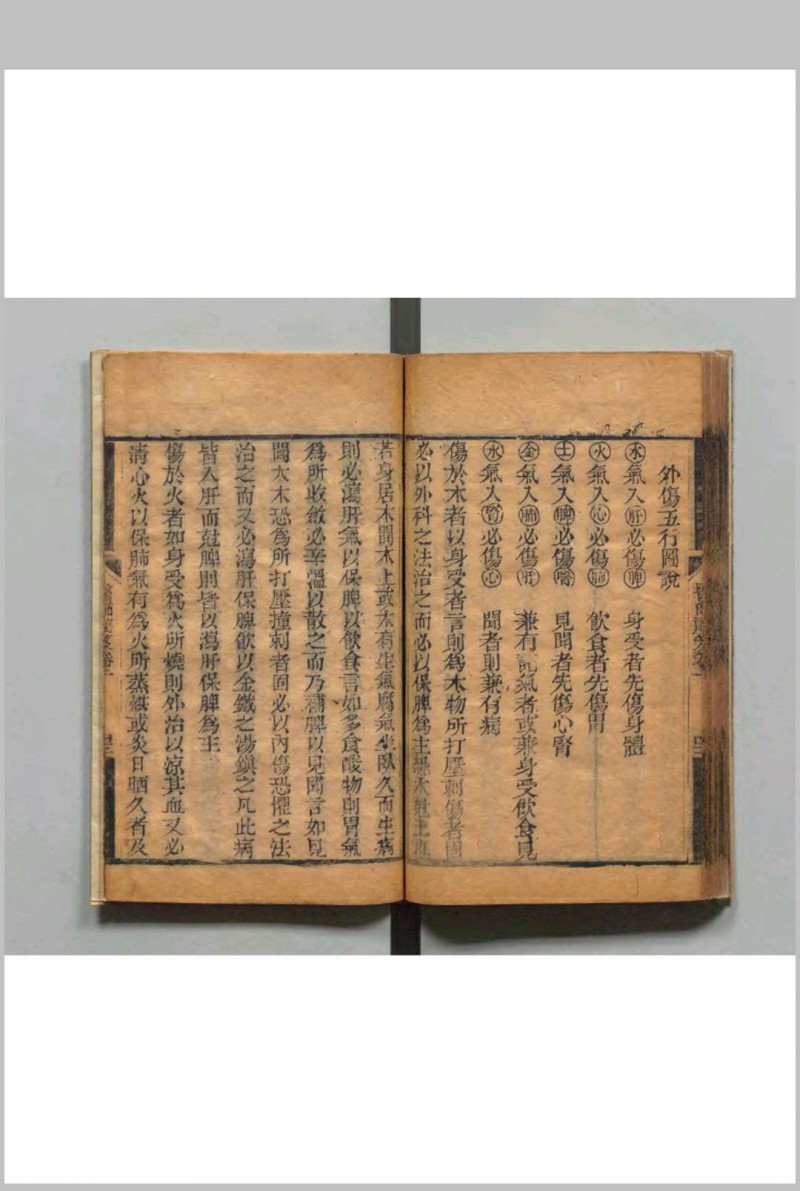 外傷五行圖說
木氣入肝必傷脾　身受者先傷身體
火氣入心必傷肺　飲食者先傷胃
土氣入脾必傷腎　見聞者先傷心腎
金氣入肺必傷肝　兼有氣者或兼身受飲食見
水氣入腎必傷心　聞者則兼有病
傷於木者以身受者言則為木物所打壓刺傷者固
必以外科之法治之而必以保脾為主恐木尅土也
若身居木間木上或木有生氣腐氣坐臥久而生病
則必瀉肝氣以保脾以飲食言如多食酸物則胃氣
為所收斂必辛溫以散之而乃補脾以見聞言如見
聞大木恐為所打壓撞刺者固必以內傷恐懼之法
治之而又必瀉肝保脾飲以金鐵之湯鎮之凡此病
皆入肝而尅脾則皆以瀉肝保脾為主
傷於火者如身受為火所燒則外治以涼其血又必
清心火以保肺氣有為火所蒸燻或炎日晒久者及